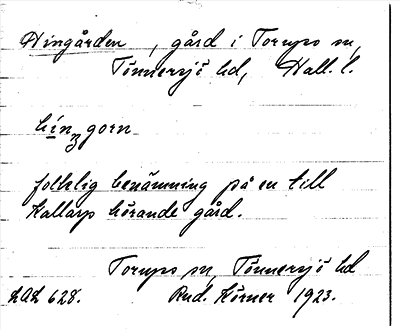 Hingården, gård i Torups sn,
Tönnersjö hd, Hall. l.
hin gorn
folklig benämning på en till
Kallarp hörande gård.
Torups sn, Tönnersjö hd
LAL 628. Rud. Körner 1923.